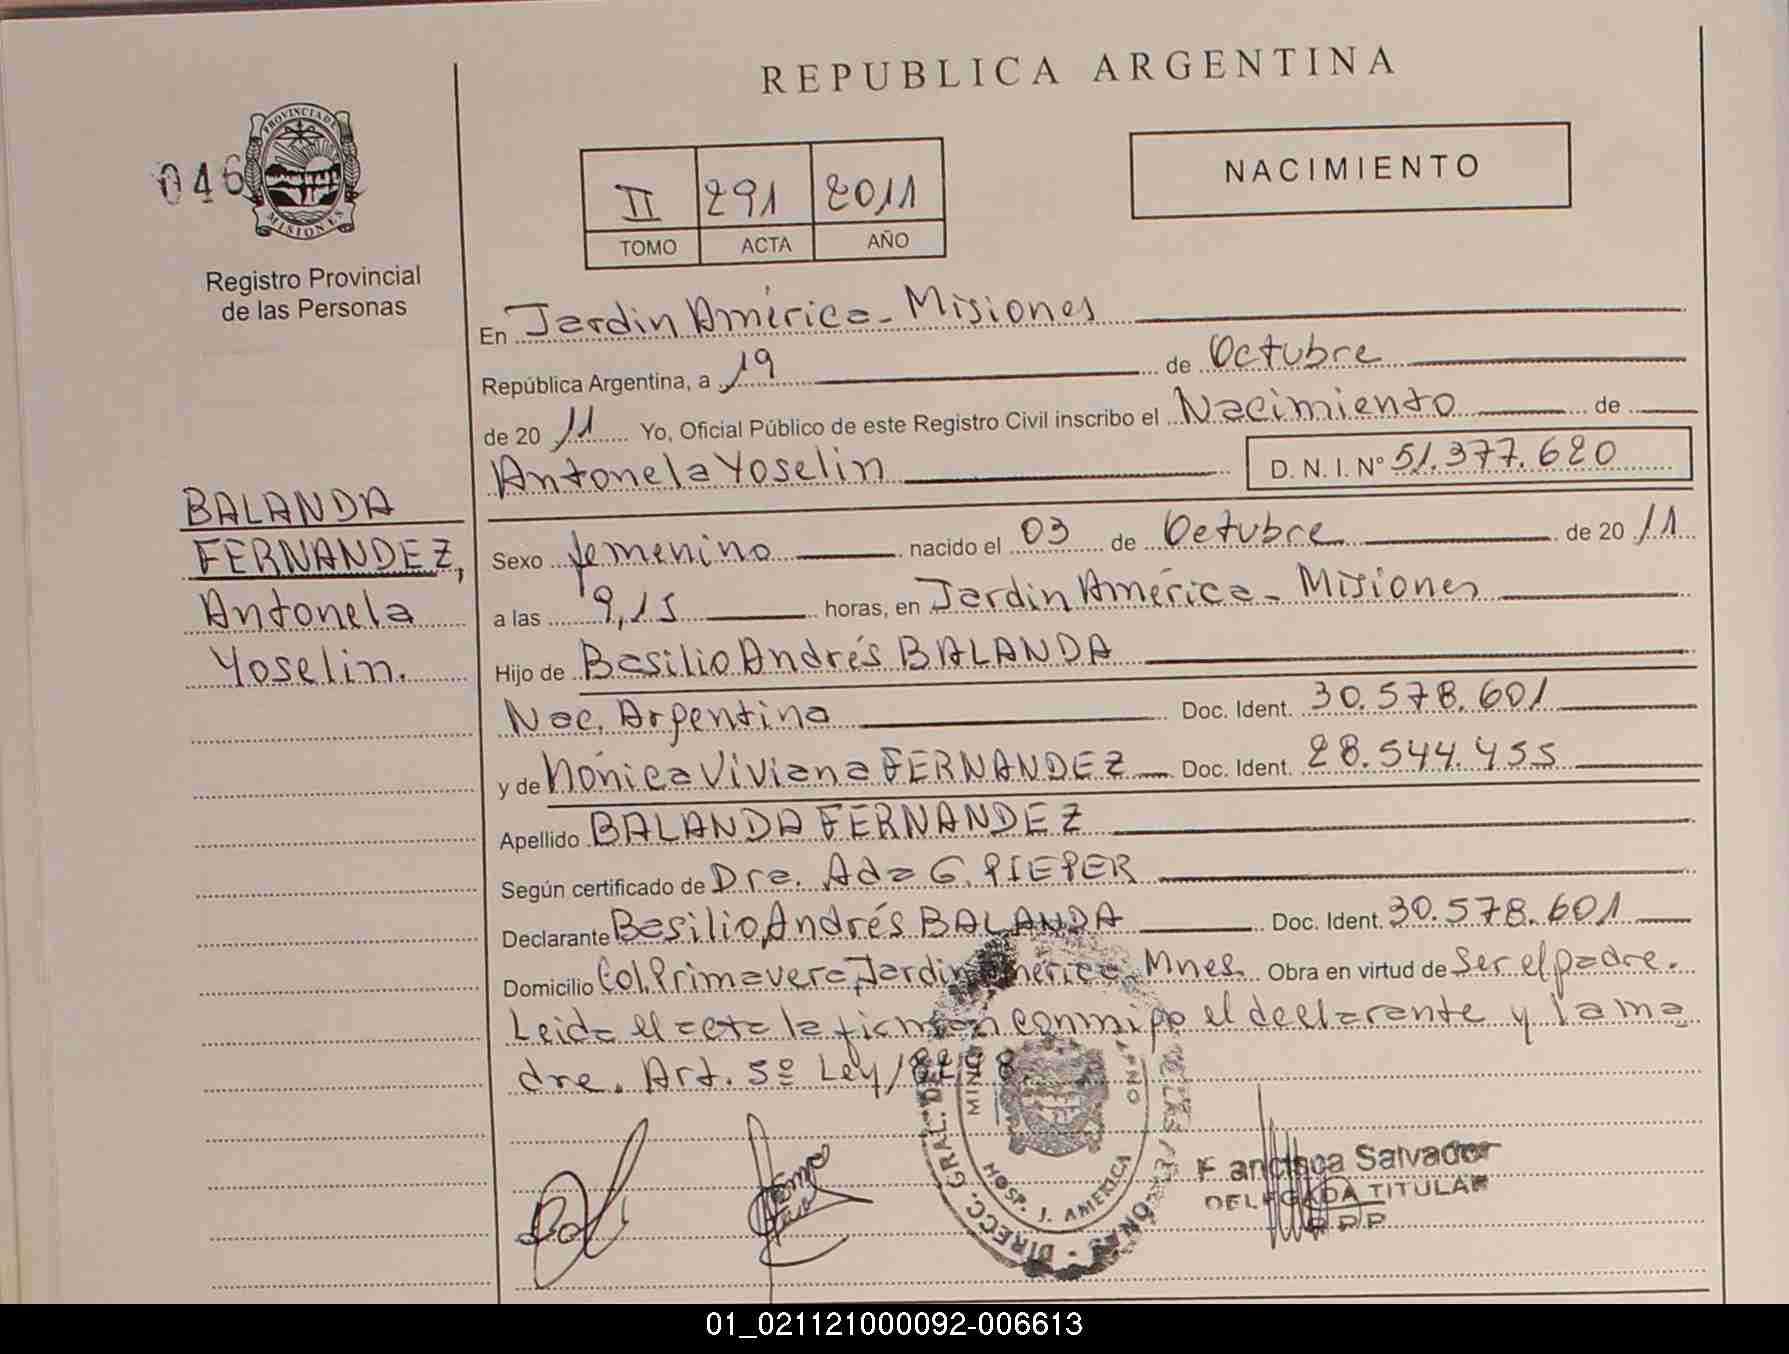 REPUBLICA ARGENTINA
046
PROVINCIA DE MISIONES
Registro Provincial
de las Personas
II 291 2011
TOMO ACTA AÑO
NACIMIENTO
En Jardin América - Misiones
República Argentina, a 19 de Octubre
de 20 11 Yo, Oficial Público de este Registro Civil inscribo el Nacimiento de
Antonela Yoselin D. N. I. Nº 51.377.620
BALANDA
FERNANDEZ,
Antonela
Yoselin.
Sexo femenino nacido el 03 de Octubre de 20 11
a las 9,15 horas, en Jardin América - Misiones
Hijo de Basilio Andrés BALANDA
Nac. Argentina Doc. Ident. 30.578.601
y de Mónica Viviana FERNANDEZ Doc. Ident. 28.544.455
Apellido BALANDA FERNANDEZ
Según certificado de Dra. Ada G. PIEPER
Declarante Basilio Andrés BALANDA Doc. Ident. 30.578.601
Domicilio Col. Primavera, Jardin América, Mnes. Obra en virtud de Ser el padre.
Leida el acta la firman conmigo el declarante y la ma
dre. Art. 5º Ley 18248.
DIRECC. GRAL. DE
HOSP. J. AMERICA
F ancisca Salvador
DELEGADA TITULAR
R P P
01_021121000092-006613